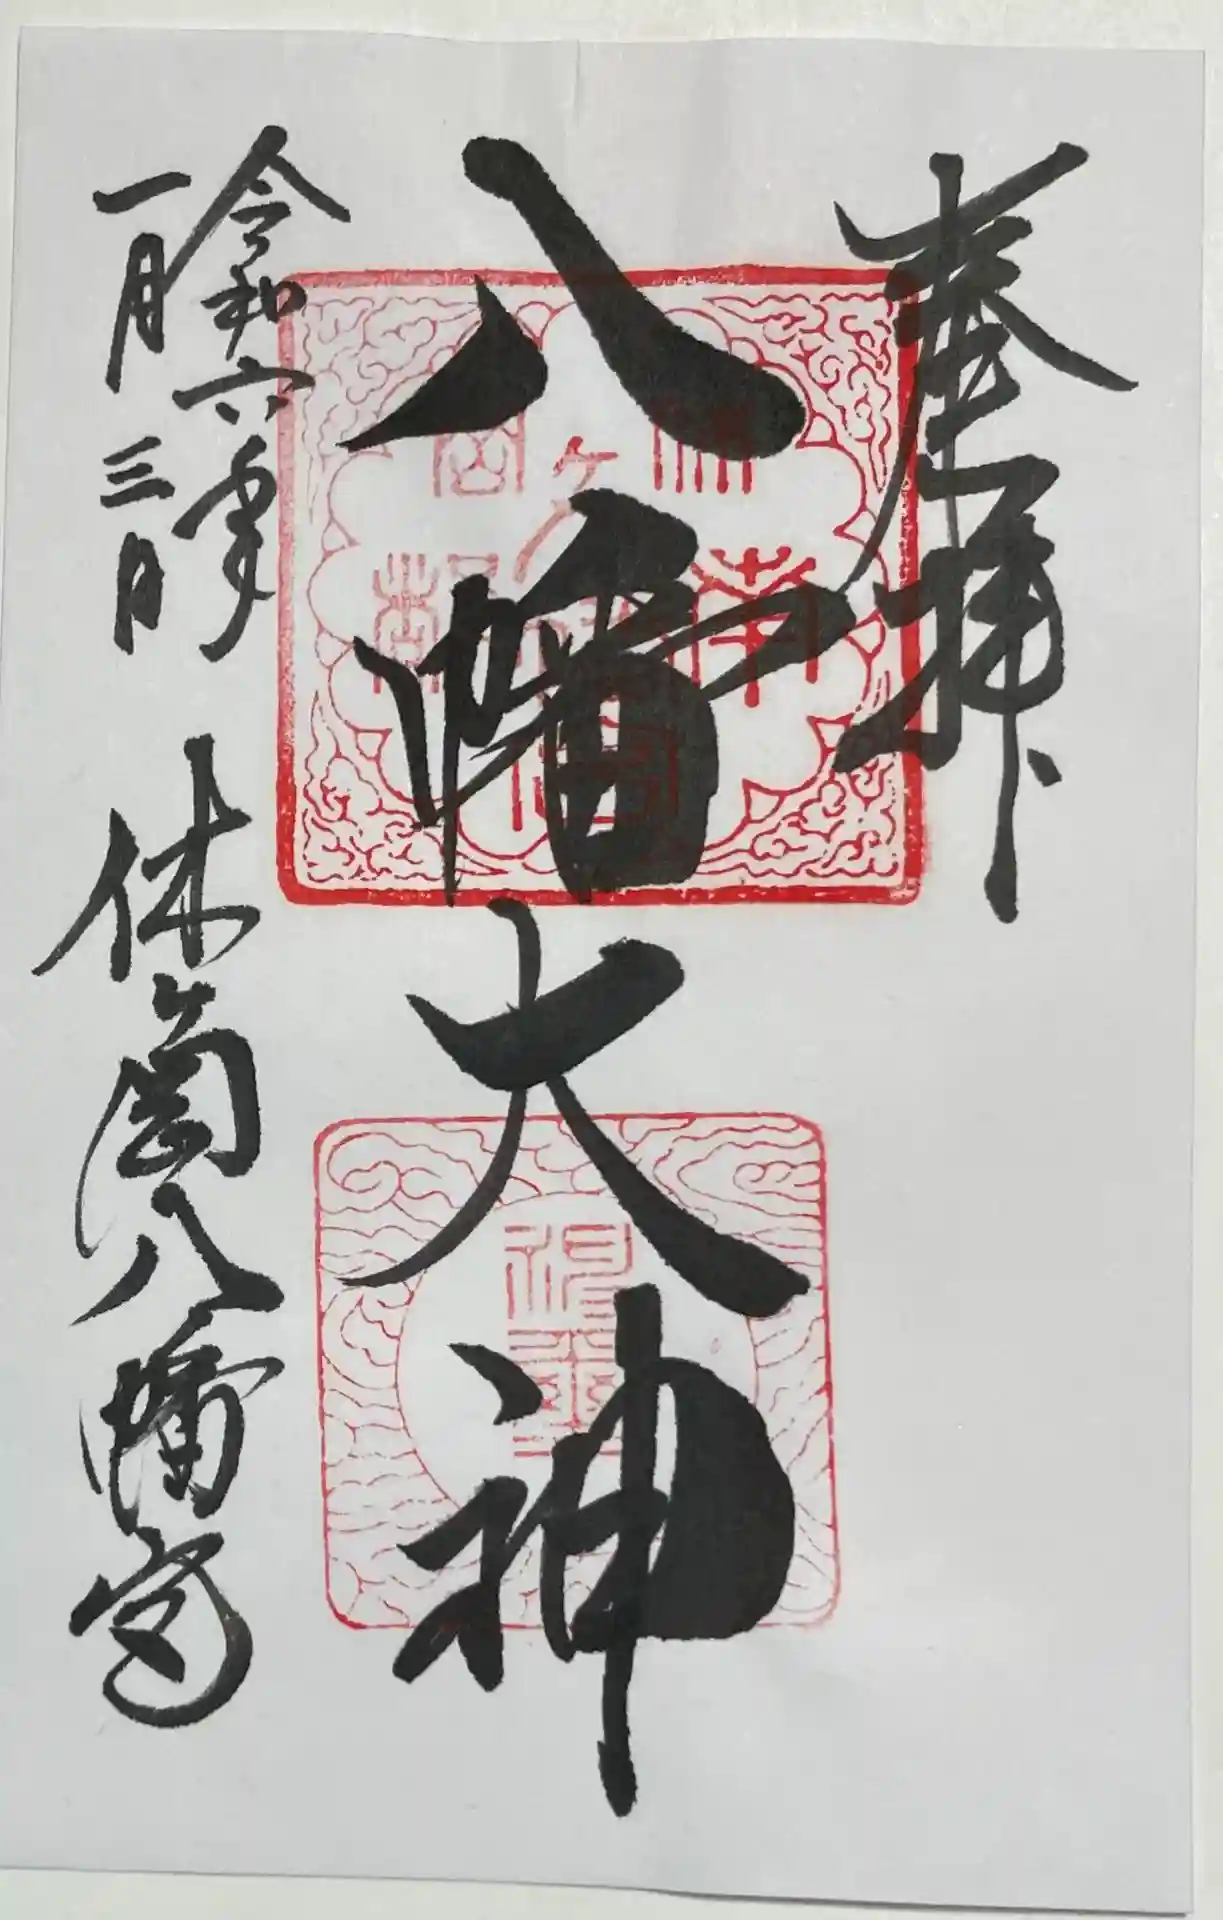 奉拝
八幡大神
令和六年
一月三日
休ヶ岡八幡宮